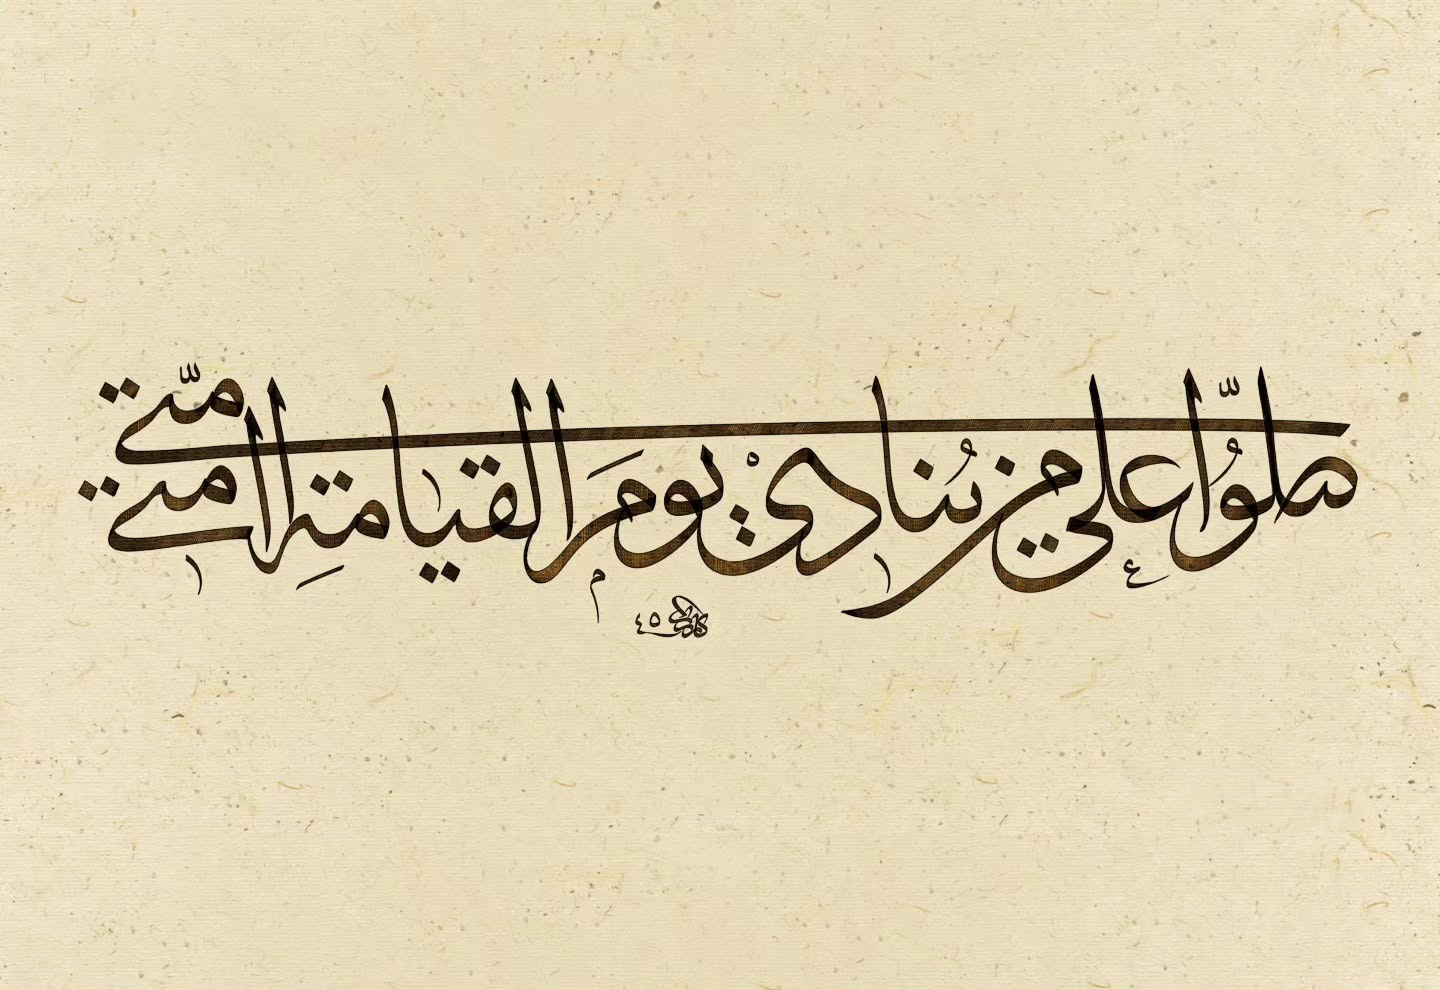 صلوّا على من يُنادي يومَ القيامةِ امتي امتّي
٤٥